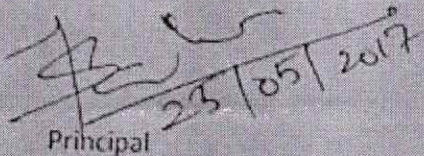 23/05/2017
Principal